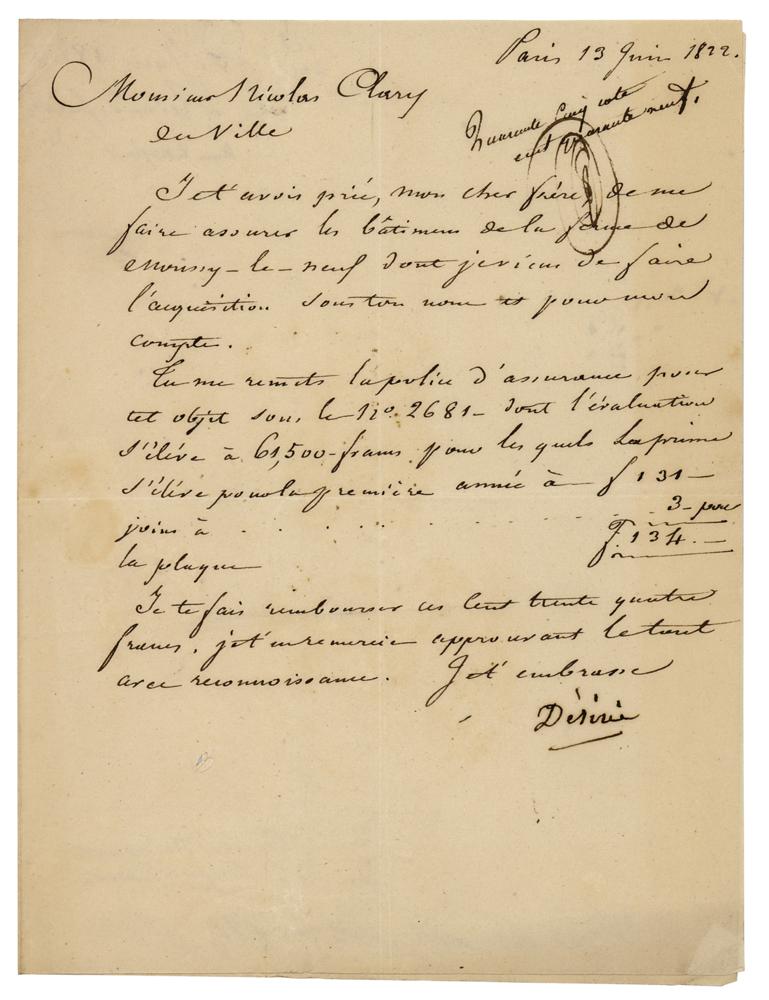 Paris 13 Juin 1822.
Monsieur Nicolas Clary
en Ville
Quarante Cinq cote
cent quarante neuf.
Je t'avois prié, mon cher frère, de me
faire assurer les bâtimens de la ferme de
Moussy-le-neuf dont je viens de faire
l'acquisition sous ton nom et pour mon
compte.
Tu me remets la police d'assurance pour
cet objet sous le No. 2681 - dont l'évaluation
s'élève à 61,500 - francs pour les quels la prime
s'élève pour la première année à f 131 -
3 - pour
joins à . . . . . . . . .
f 134. -
la plaque
Je te fais rembourser ces Cent trente quatre
francs, je t'en remercie approuvant le tout
avec reconnoissance. Je t'embrasse
Désirée